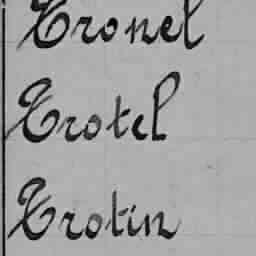 Tronel
Trotel
Trotin